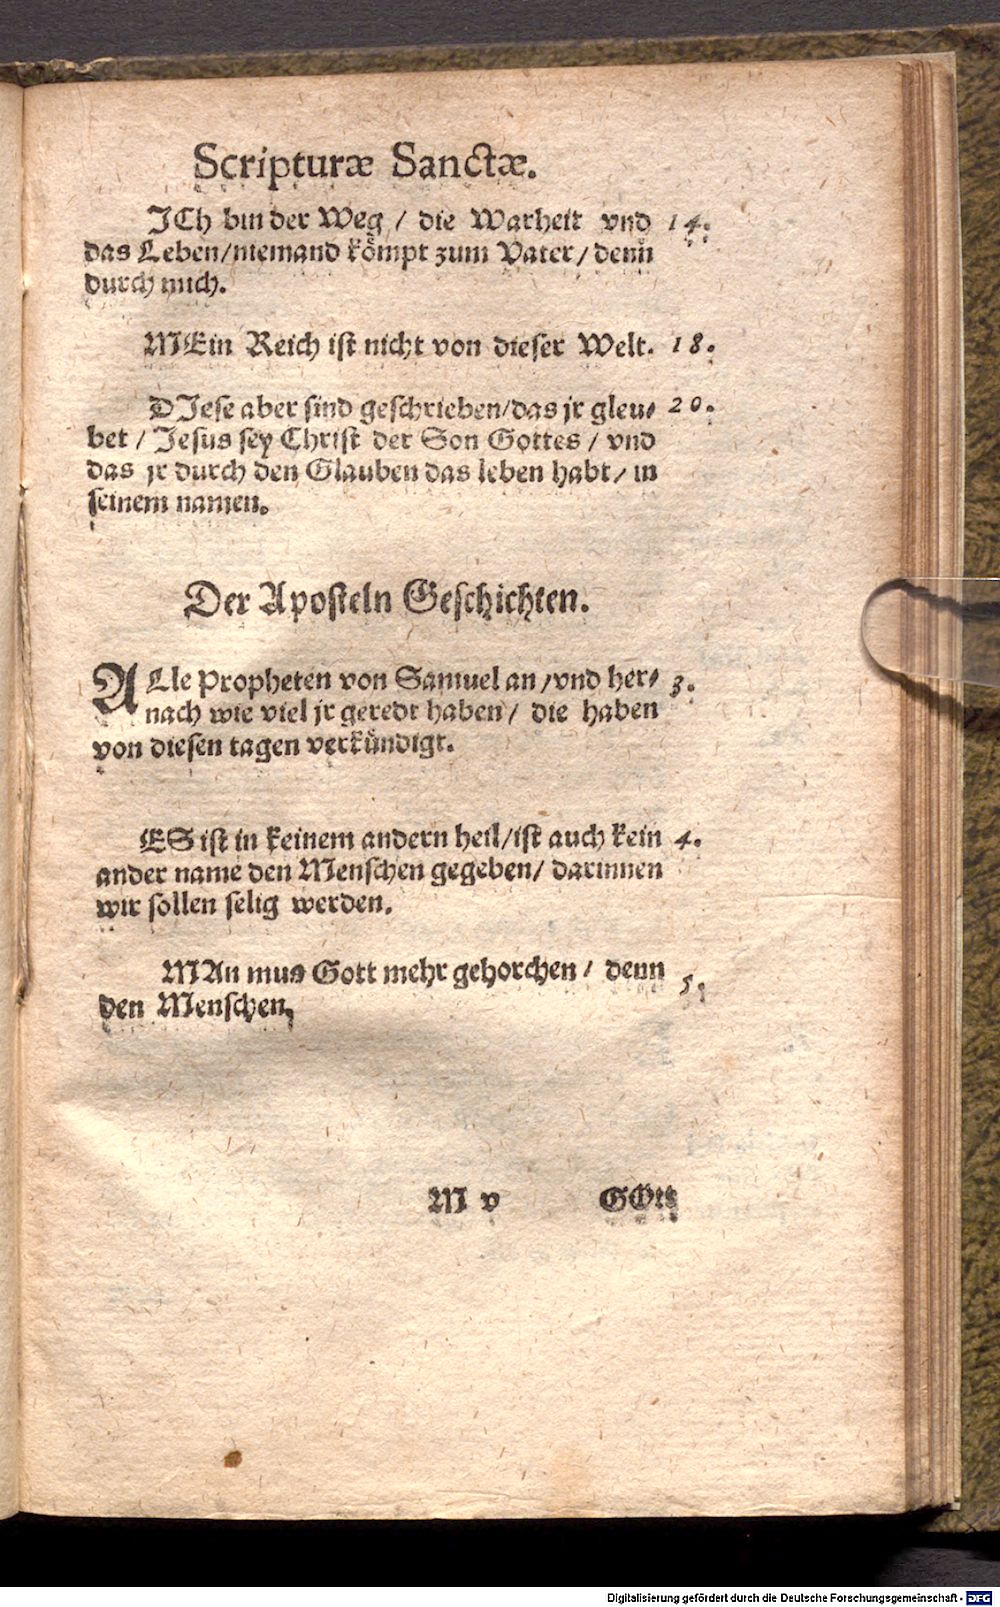 Scripturæ Sanctæ.
JCh bin der Weg / die Warheit vnd 14.
das Leben/niemand kömpt zum Vater/ denn
durch mich.
MEin Reich ist nicht von dieser Welt. 18.
DJese aber sind geschrieben/das jr gleu- 20.
bet / Jesus sey Christ der Son Gottes / vnd
das jr durch den Glauben das leben habt/ in
seinem namen.
Der Aposteln Geschichten.
ALle Propheten von Samuel an/vnd her- 3.
nach wie viel jr geredt haben/ die haben
von diesen tagen verkündigt.
ES ist in keinem andern heil/ist auch kein 4.
ander name den Menschen gegeben/ darinnen
wir sollen selig werden.
MAn mus Gott mehr gehorchen/ denn 5.
den Menschen.
M v GOtt
Digitalisierung gefördert durch die Deutsche Forschungsgemeinschaft - DFG